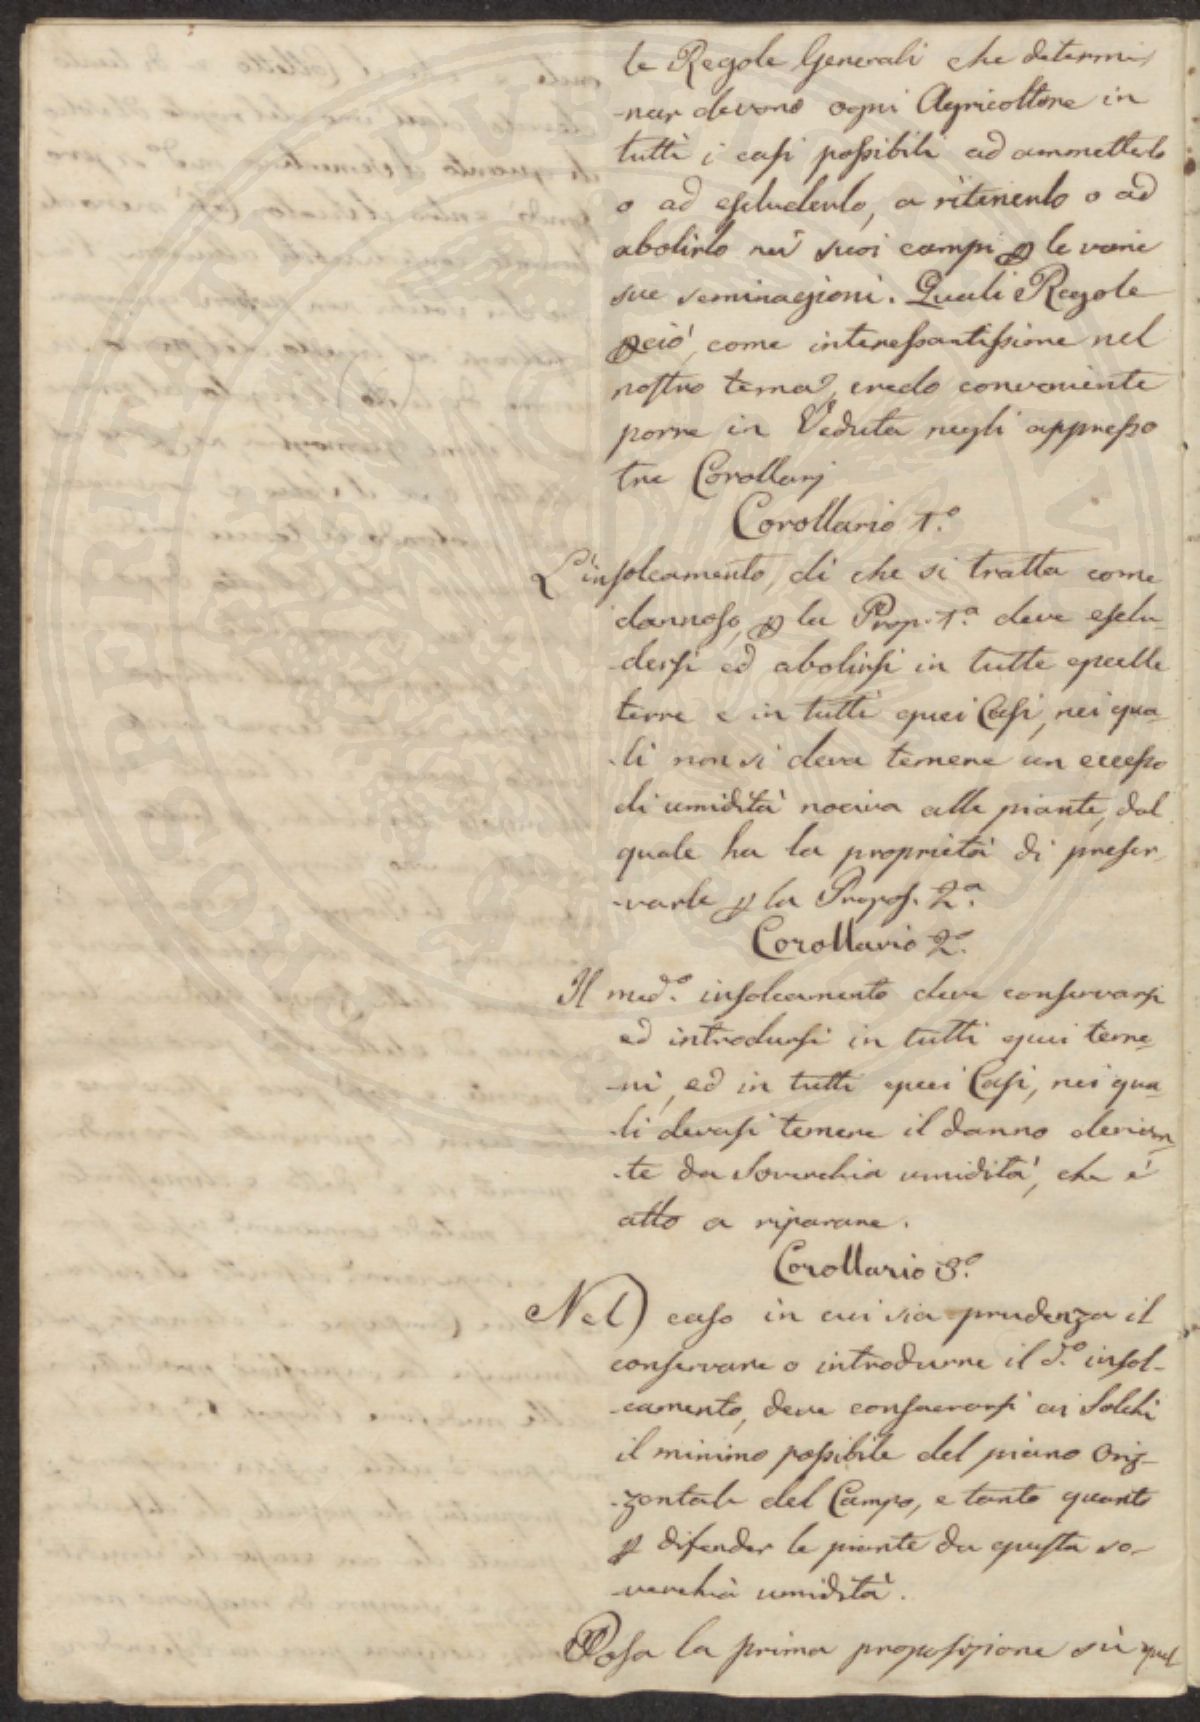 le Regole Generali che determi-
-nar devono ogni Agricoltore in
tutti i casi possibili ad ammetterlo
o ad escluderlo, a ritenerlo o ad
abolirlo nei suoi campi p le varie
sue seminagioni. Quali Regole
pciò, come interessantissime nel
nostro tema, credo conveniente
porre in Veduta negli appresso
tre Corollarj
Corollario 1.º
L'insolcamento, di che si tratta come
dannoso, p la Prop. 1.ª deve esclu-
-dersi ed abolirsi in tutte quelle
terre e in tutti quei Casi, nei qua-
-li non si deva temere un eccesso
di umidità nociva alle piante, dal
quale ha la proprietà di preser-
-varle p la Propos. 2.ª
Corollario 2.º
Il med.º insolcamento deve conservarsi
ed introdursi in tutti quei terre-
-ni, ed in tutti quei Casi, nei qua-
-li devasi temere il danno derivan-
-te da soverchia umidità, che è
atto a riparare.
Corollario 3.º
Nel caso in cui sia prudenza il
conservare o introdurre il d.º insol-
-camento, deve consacrarsi ai Solchi
il minimo possibile del piano Oriz-
-zontale del Campo, e tanto quanto
p difender le piante da questa so-
-verchia umidità.
Posa la prima proposizione sù quel